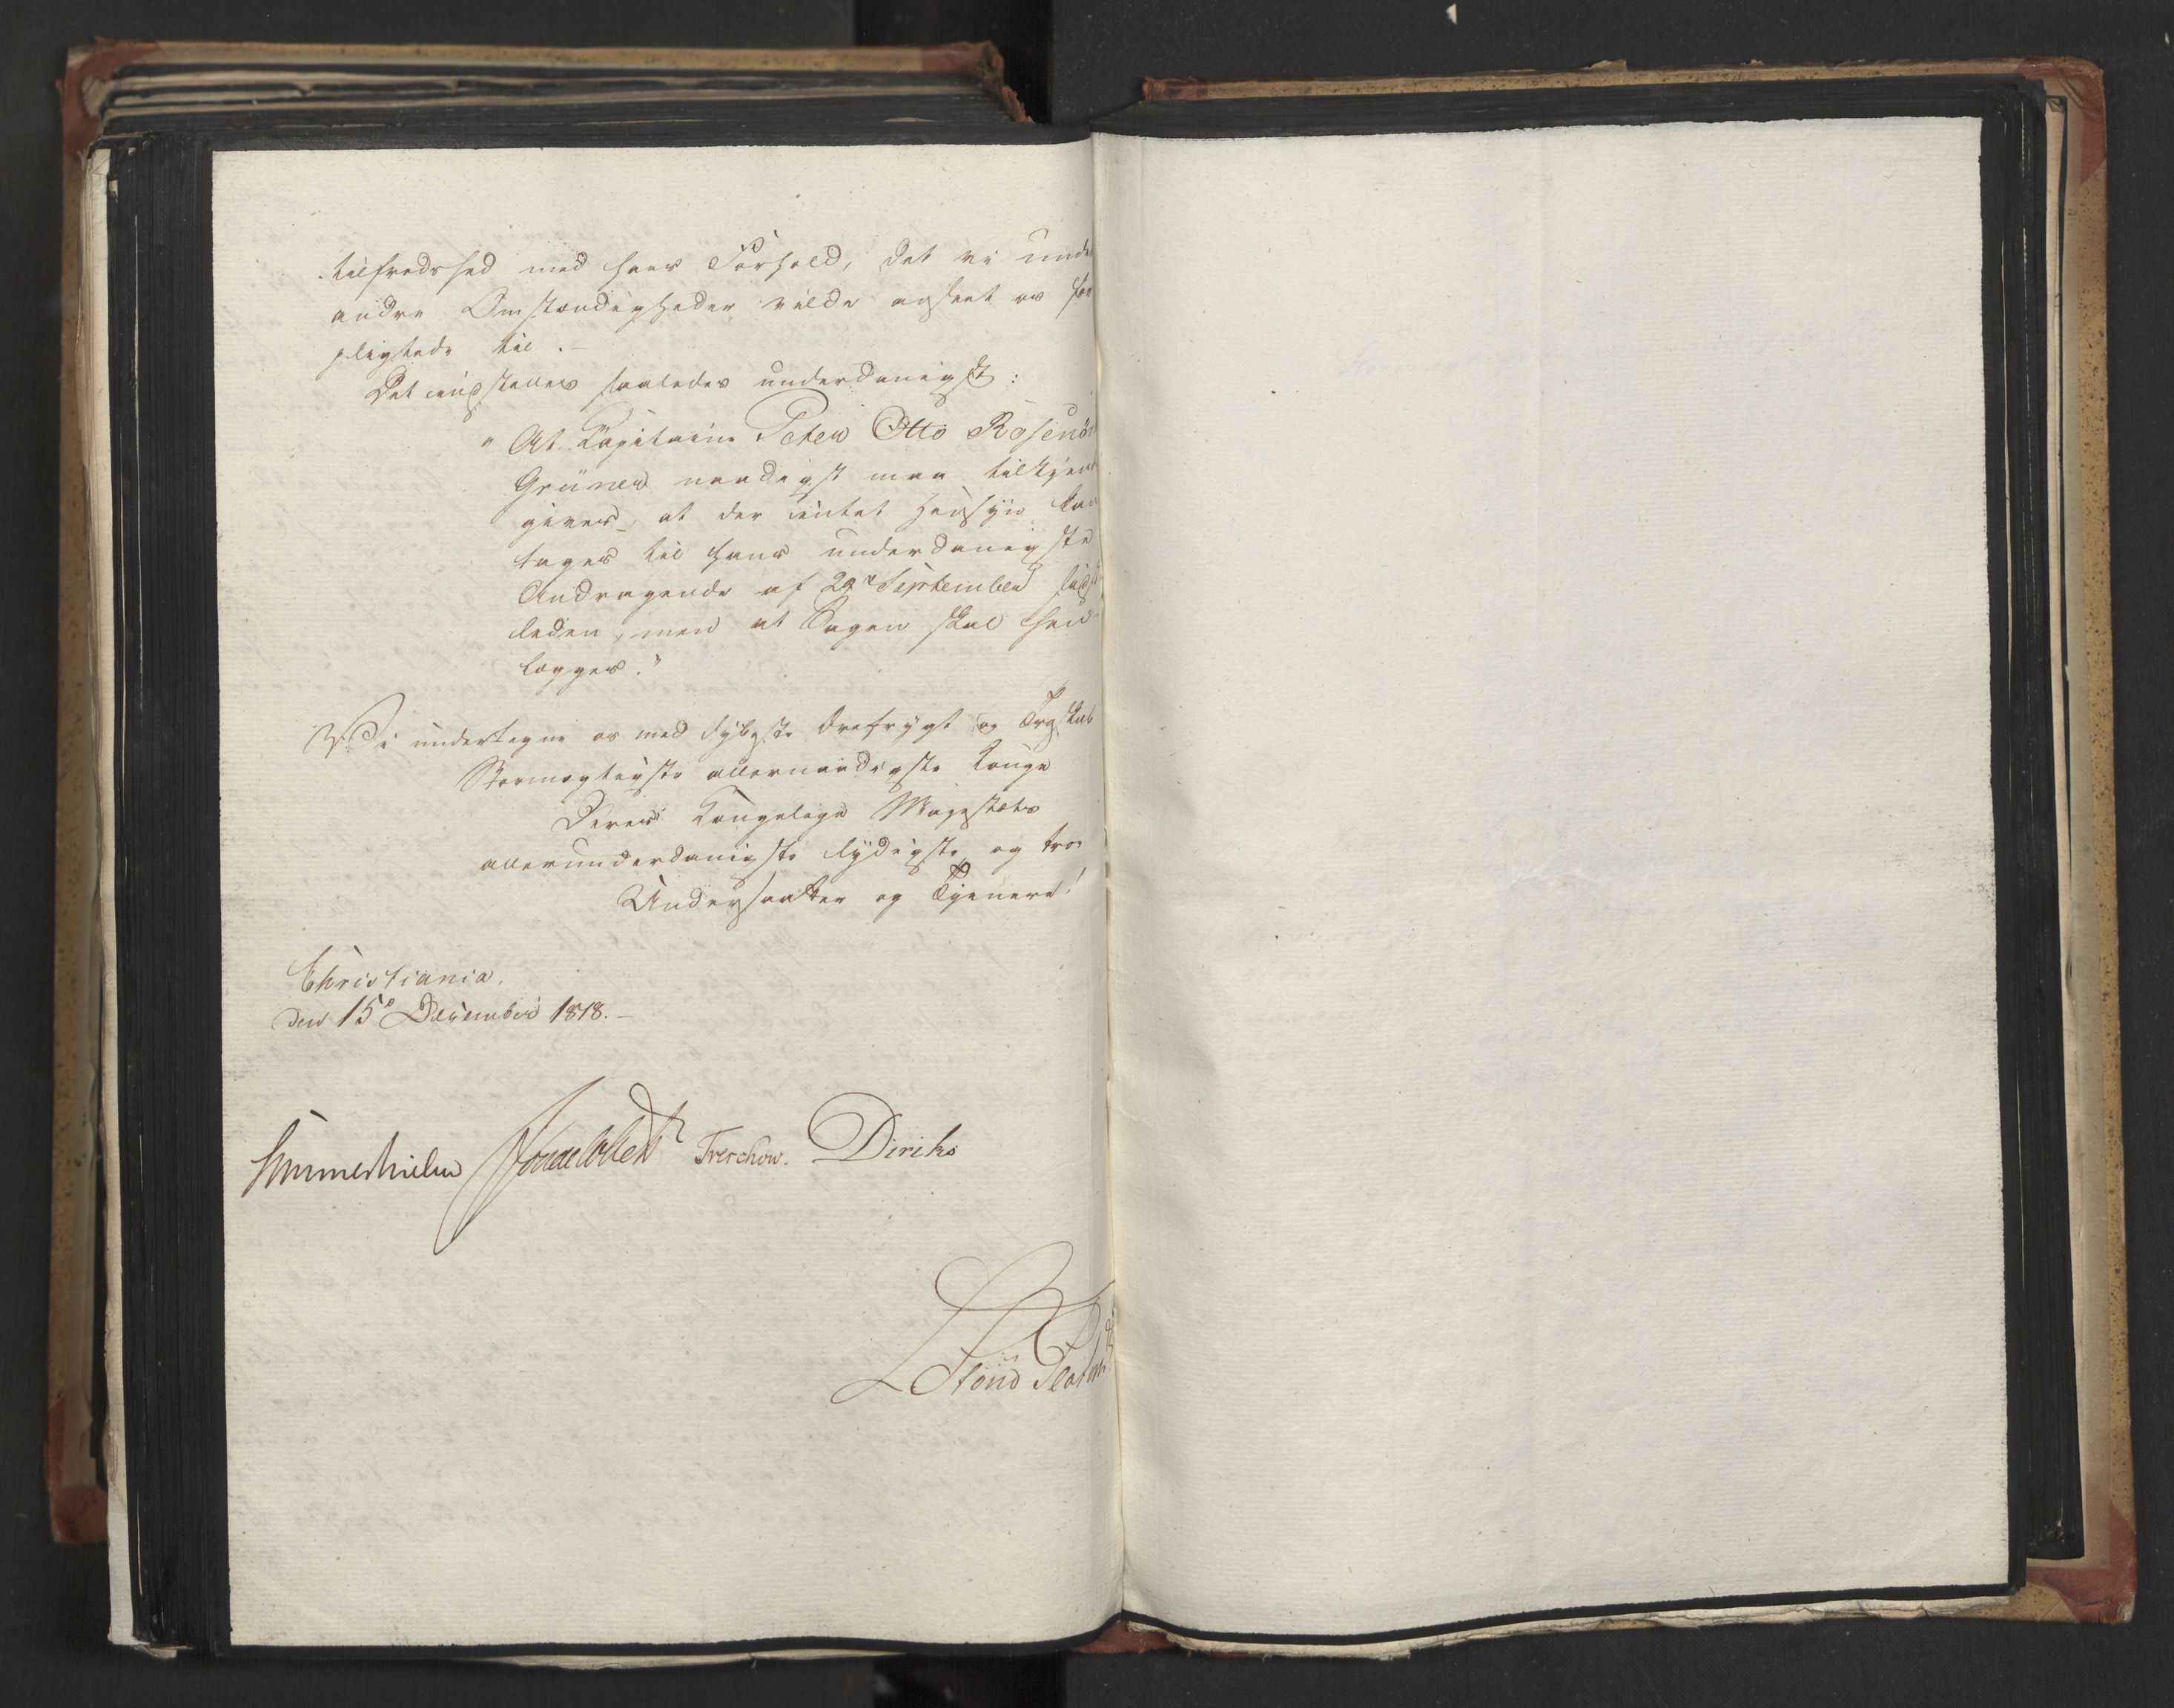 tilfredshed med hans Forhold, det vi unde
andre Omstændigheder vilde anseet os for
pligtede til. –
Det indstilles saaledes underdanigst:
" At Kapitaine Peter Otto Rosenör
Grüner naadigst maa tilkjen
gives, at der intet Hensyn kan
tages til hans underdanigste
Andragende af 29de September sidst
leden, men at Sagen skal hen
lægges."
Vi undertegne os med dybeste Ærefrygt og Troskab
Stormægtigste allernaadigste Konge
Deres Kongelige Majestæts
allerunderdanigste lydigste og troe
Undersaatter og Tjenere!
Christiania.
den 15de December 1818. –
Sommerhielm Treschow. Diriks